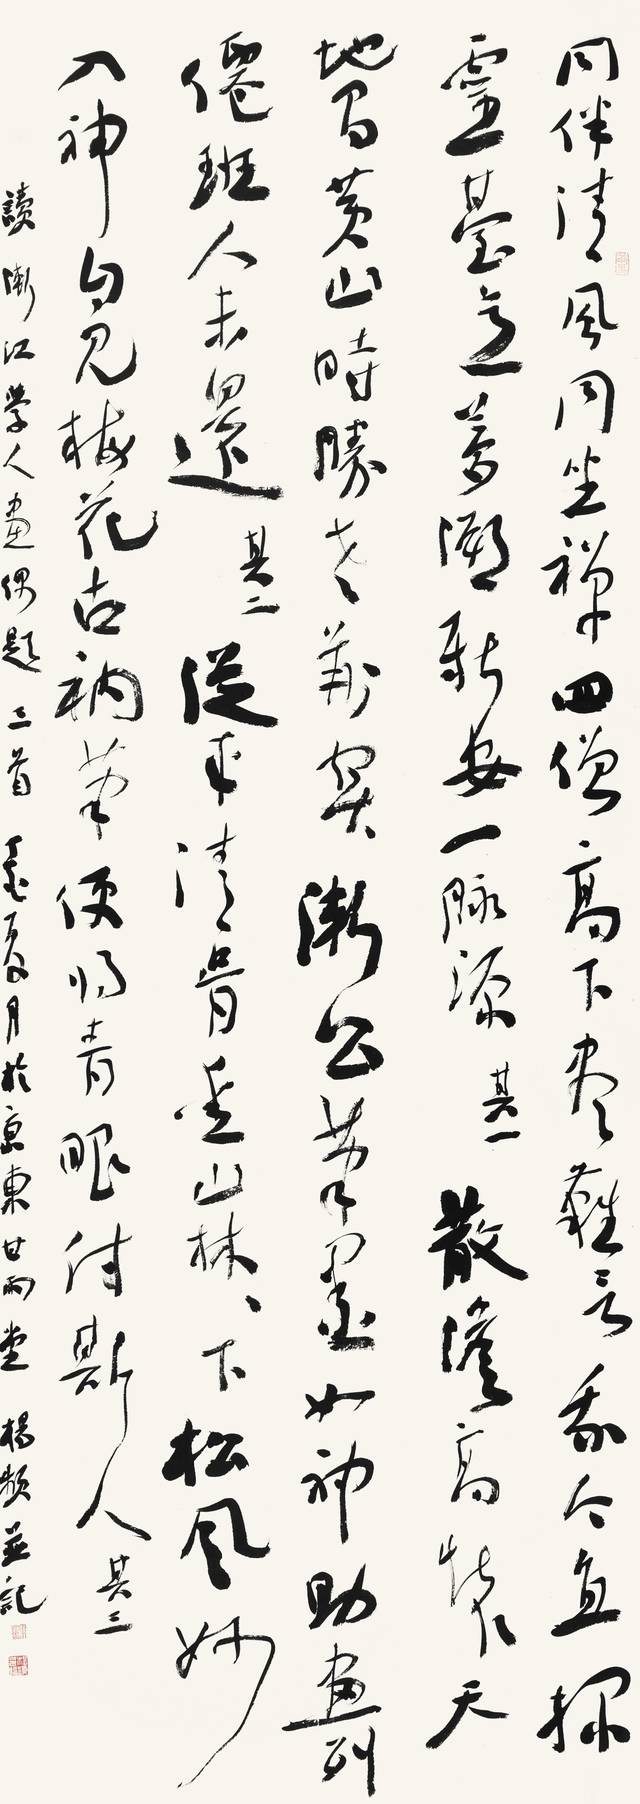 同伴清清風同坐禪四僧高下盡難言我今直探
靈臺意萬溯新安一脈源 其一 散澹高懷天
地間黃山時勝老荊關漸公筆墨如神助畫列
僊班人未還 其二 從來清清骨重山林林下松風妙
入神自見梅花古衲筆便將青眼付斯人 其三
讀漸江學人畫偶題三首 夏月於京東甘雨堂 楊頻並記